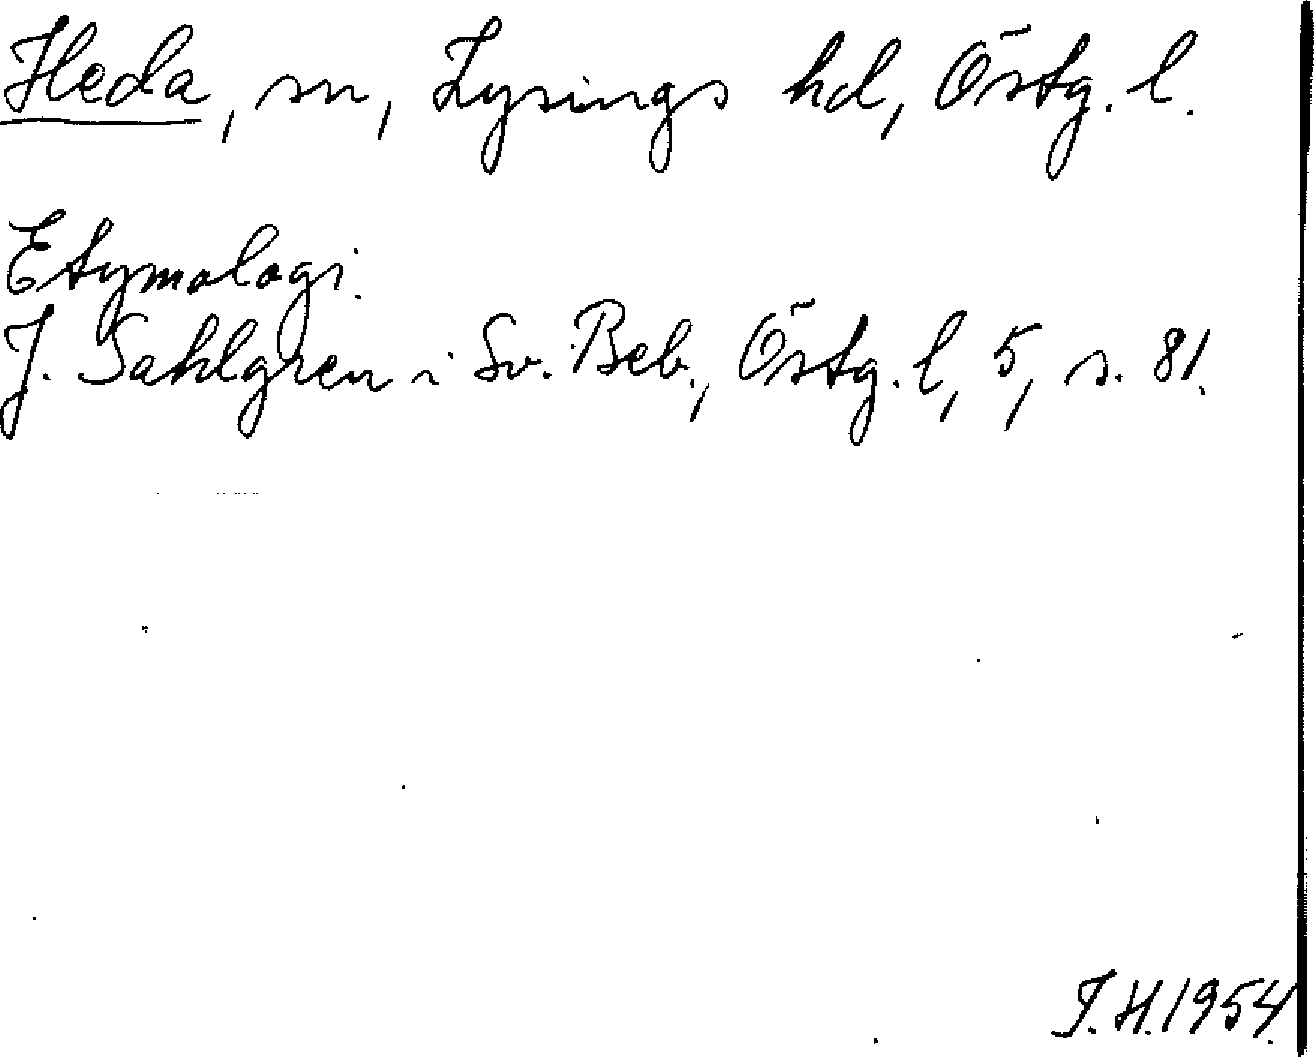 Heda, sn, Lysings hd, Östg. l.
Etymologi.
J. Sahlgren i Sv. Beb., Östg. l, 5, s. 81.
J.H.1954.